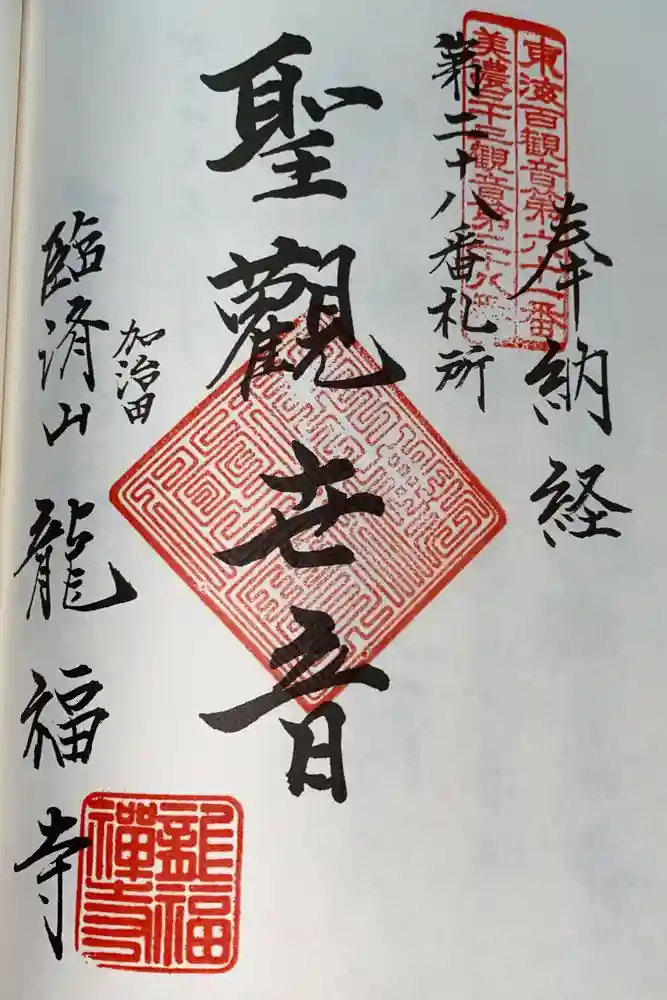 奉納経
東海百観音第六十一番
美濃三十三観音第二十八番
第二十八番札所
聖觀世音
加治田
臨済山 龍福寺
龍福禪寺